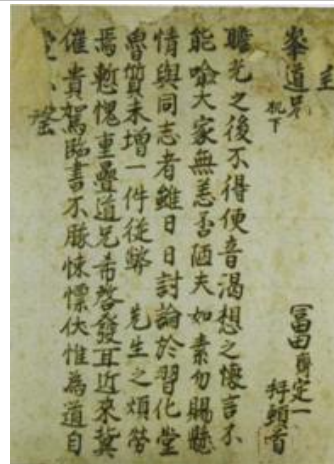 主
峯道兄
机下
冨田齊定一
拝頓首
瞻光之後不得便音渇想之懷言不
能喩大家無恙否陋夫如素勿賜懸
情與同志者雖日日討論於習化堂
魯質未增一件徒弊 先生之煩勞
焉慙愧重疊道兄希啓發耳近來冀
催貴駕臨書不勝悚慓伏惟為道自